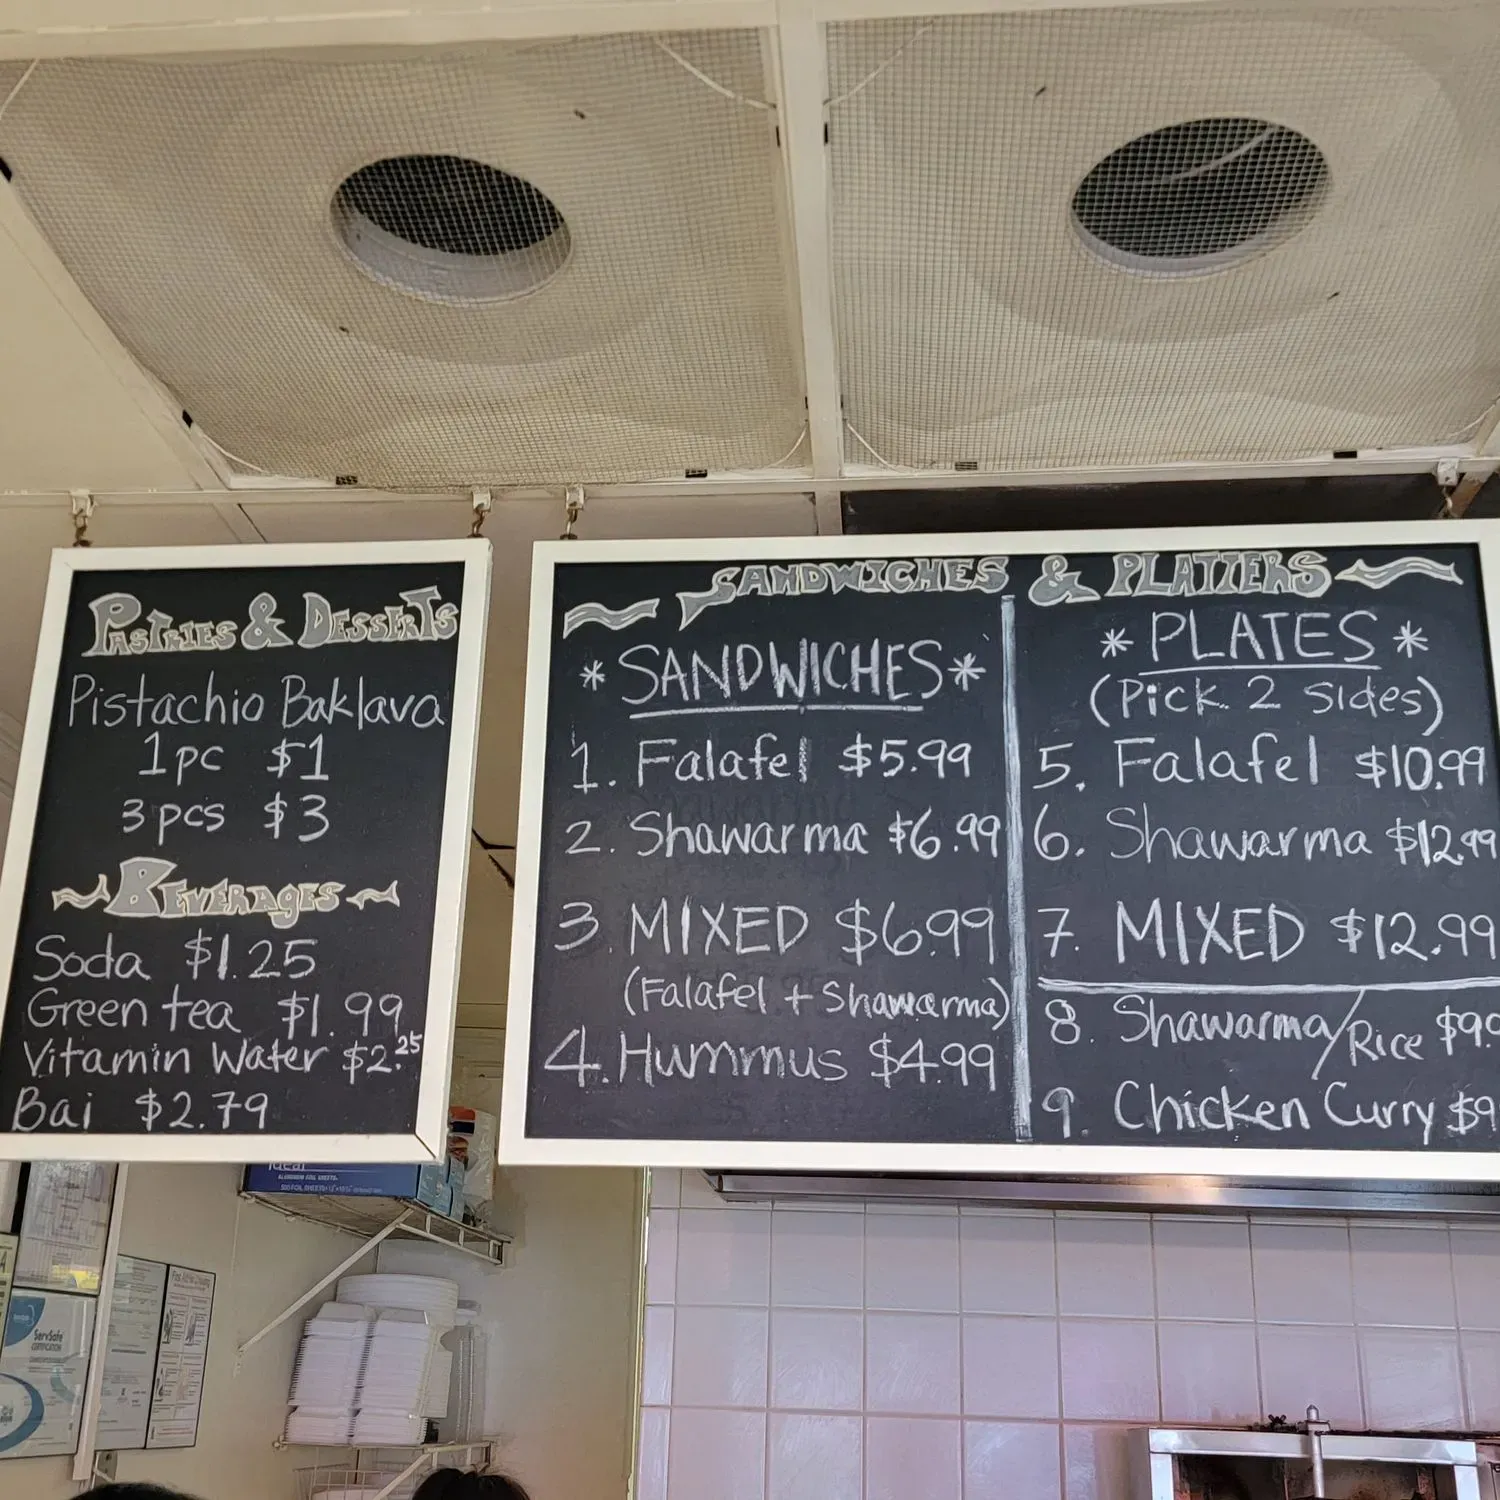 PASTRIES & DESSERTS
Pistachio Baklava
1pc $1
3pcs $3
BEVERAGES
Soda $1.25
Green tea $1.99
Vitamin Water $2.25
Bai $2.79
SANDWICHES & PLATTERS
* SANDWICHES *
1. Falafel $5.99
2. Shawarma $6.99
3. MIXED $6.99
(Falafel + Shawarma)
4. Hummus $4.99
* PLATES *
(Pick 2 sides)
5. Falafel $10.99
6. Shawarma $12.99
7. MIXED $12.99
8. Shawarma/Rice $9.9
9. Chicken Curry $9
ALUMINUM FOIL SHEETS
ServSafe
CERTIFICATION